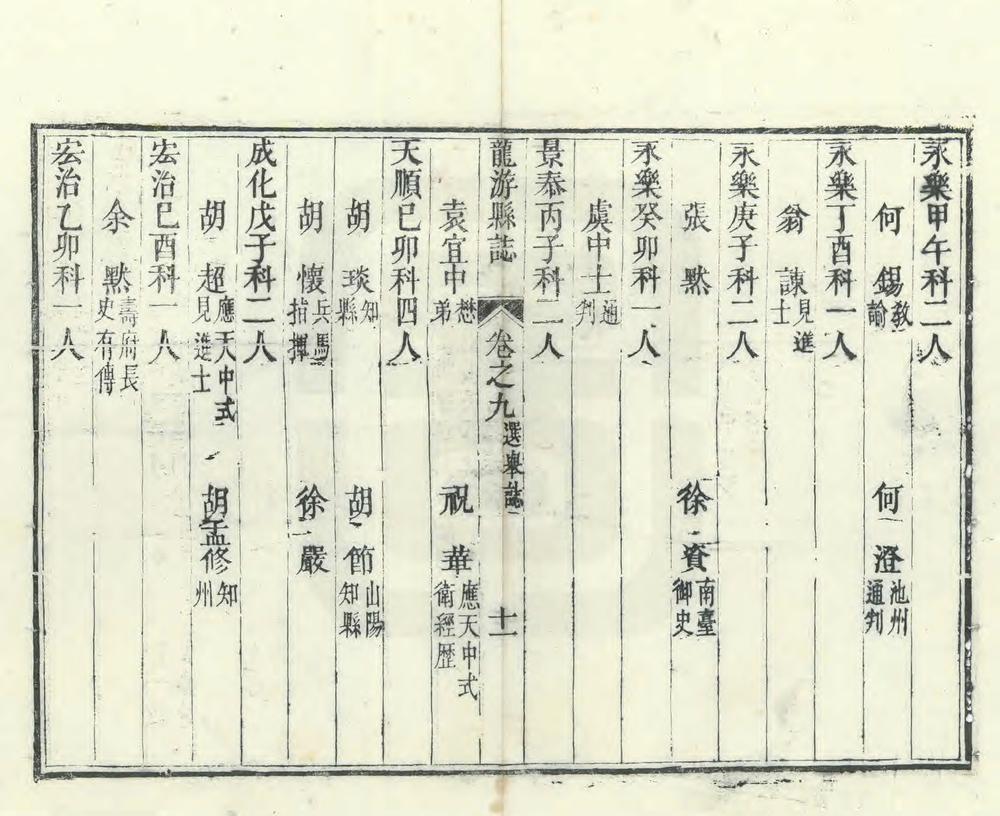 永樂甲午科二人
何錫教諭 何澄池州通判
永樂丁酉科一人
翁諫見進士
永樂庚子科二人
張黙 徐資南臺御史
永樂癸卯科一人
虞中士通判
景泰丙子科二人
龍游縣誌 卷之九選舉誌 十一
袁宜中懋弟 祝華應天中式衛經歷
天順己卯科四人
胡琰知縣 胡節山陽知縣
胡懷兵馬指揮 徐嚴
成化戊子科二人
胡超應天中式見進士 胡孟修知州
宏治己酉科一人
余黙壽府長史有傳
宏治乙卯科一人